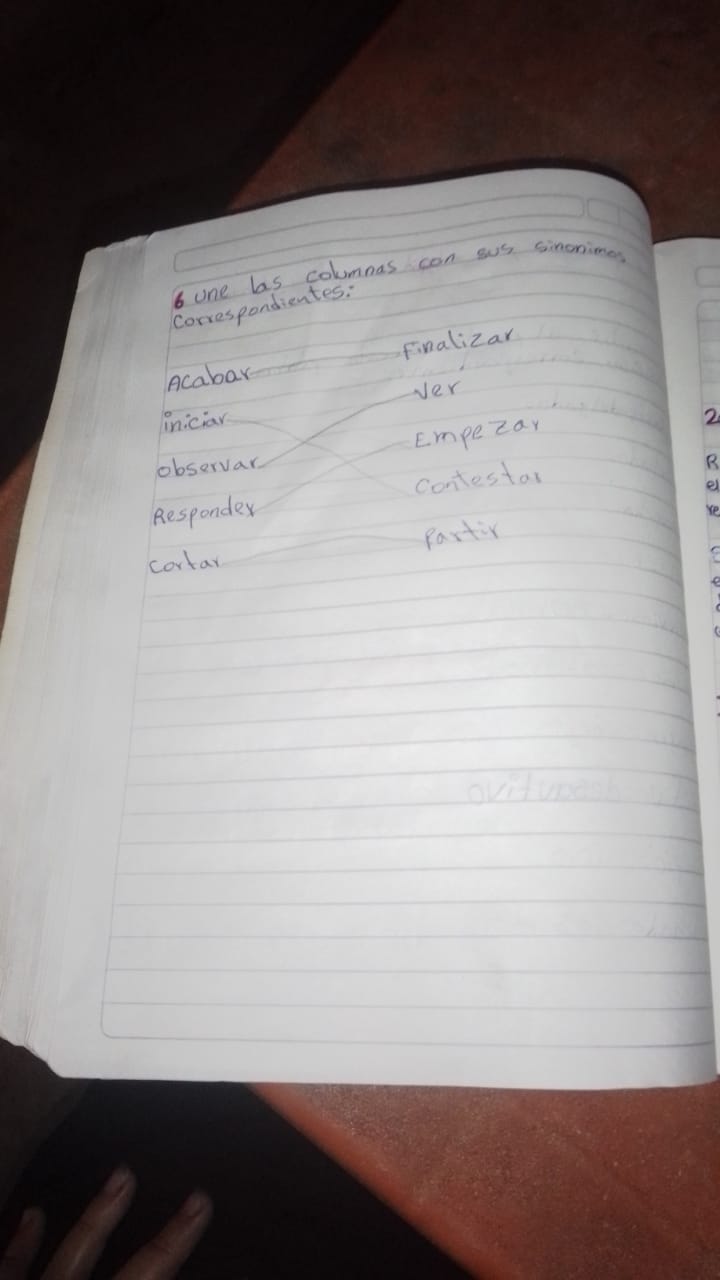 6 une las columnas con sus sinonimos
Correspondientes:
Acabar Finalizar
iniciar Ver
observar Empezar
Responder Contestar
Cortar Partir